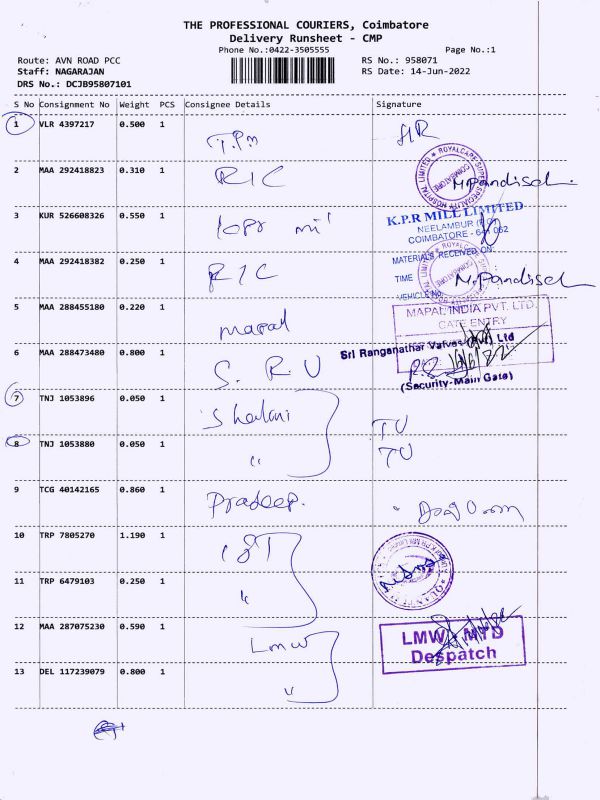 THE PROFESSIONAL COURIERS, Coimbatore
Delivery Runsheet - CMP
Phone No.:0422-3505555
Page No.:1
Route: AVN ROAD PCC
RS No.: 958071
Staff: NAGARAJAN
RS Date: 14-Jun-2022
DRS No.: DCJB95807101
S No Consignment No Weight PCS Consignee Details Signature
1 VLR 4397217 0.500 1
2 MAA 292418823 0.310 1 RIC M.Pandisel
ROYALCARE SUPER SPECIALITY HOSPITAL LIMITED
COIMBATORE
3 KUR 526608326 0.550 1 kpr mil
K.P.R MILL LIMITED
NEELAMBUR
COIMBATORE - 641 062
MATERIALS RECEIVED ON
4 MAA 292418382 0.250 1 RIC M.Pandisel
TIME
VEHICLE NO.
5 MAA 288455180 0.220 1 mapal
MAPAL INDIA PVT. LTD.
GATE ENTRY
6 MAA 288473480 0.800 1 S. R. V
Sri Ranganathar Valves Ltd
(Security-Main Gate)
7 TNJ 1053896 0.050 1 Shalani
8 TNJ 1053880 0.050 1 "
9 TCG 40142165 0.860 1 Pradeep.
10 TRP 7805270 1.190 1
11 TRP 6479103 0.250 1 "
12 MAA 287075230 0.590 1 Lmw
LMW MTD
Despatch
13 DEL 117239079 0.800 1 "